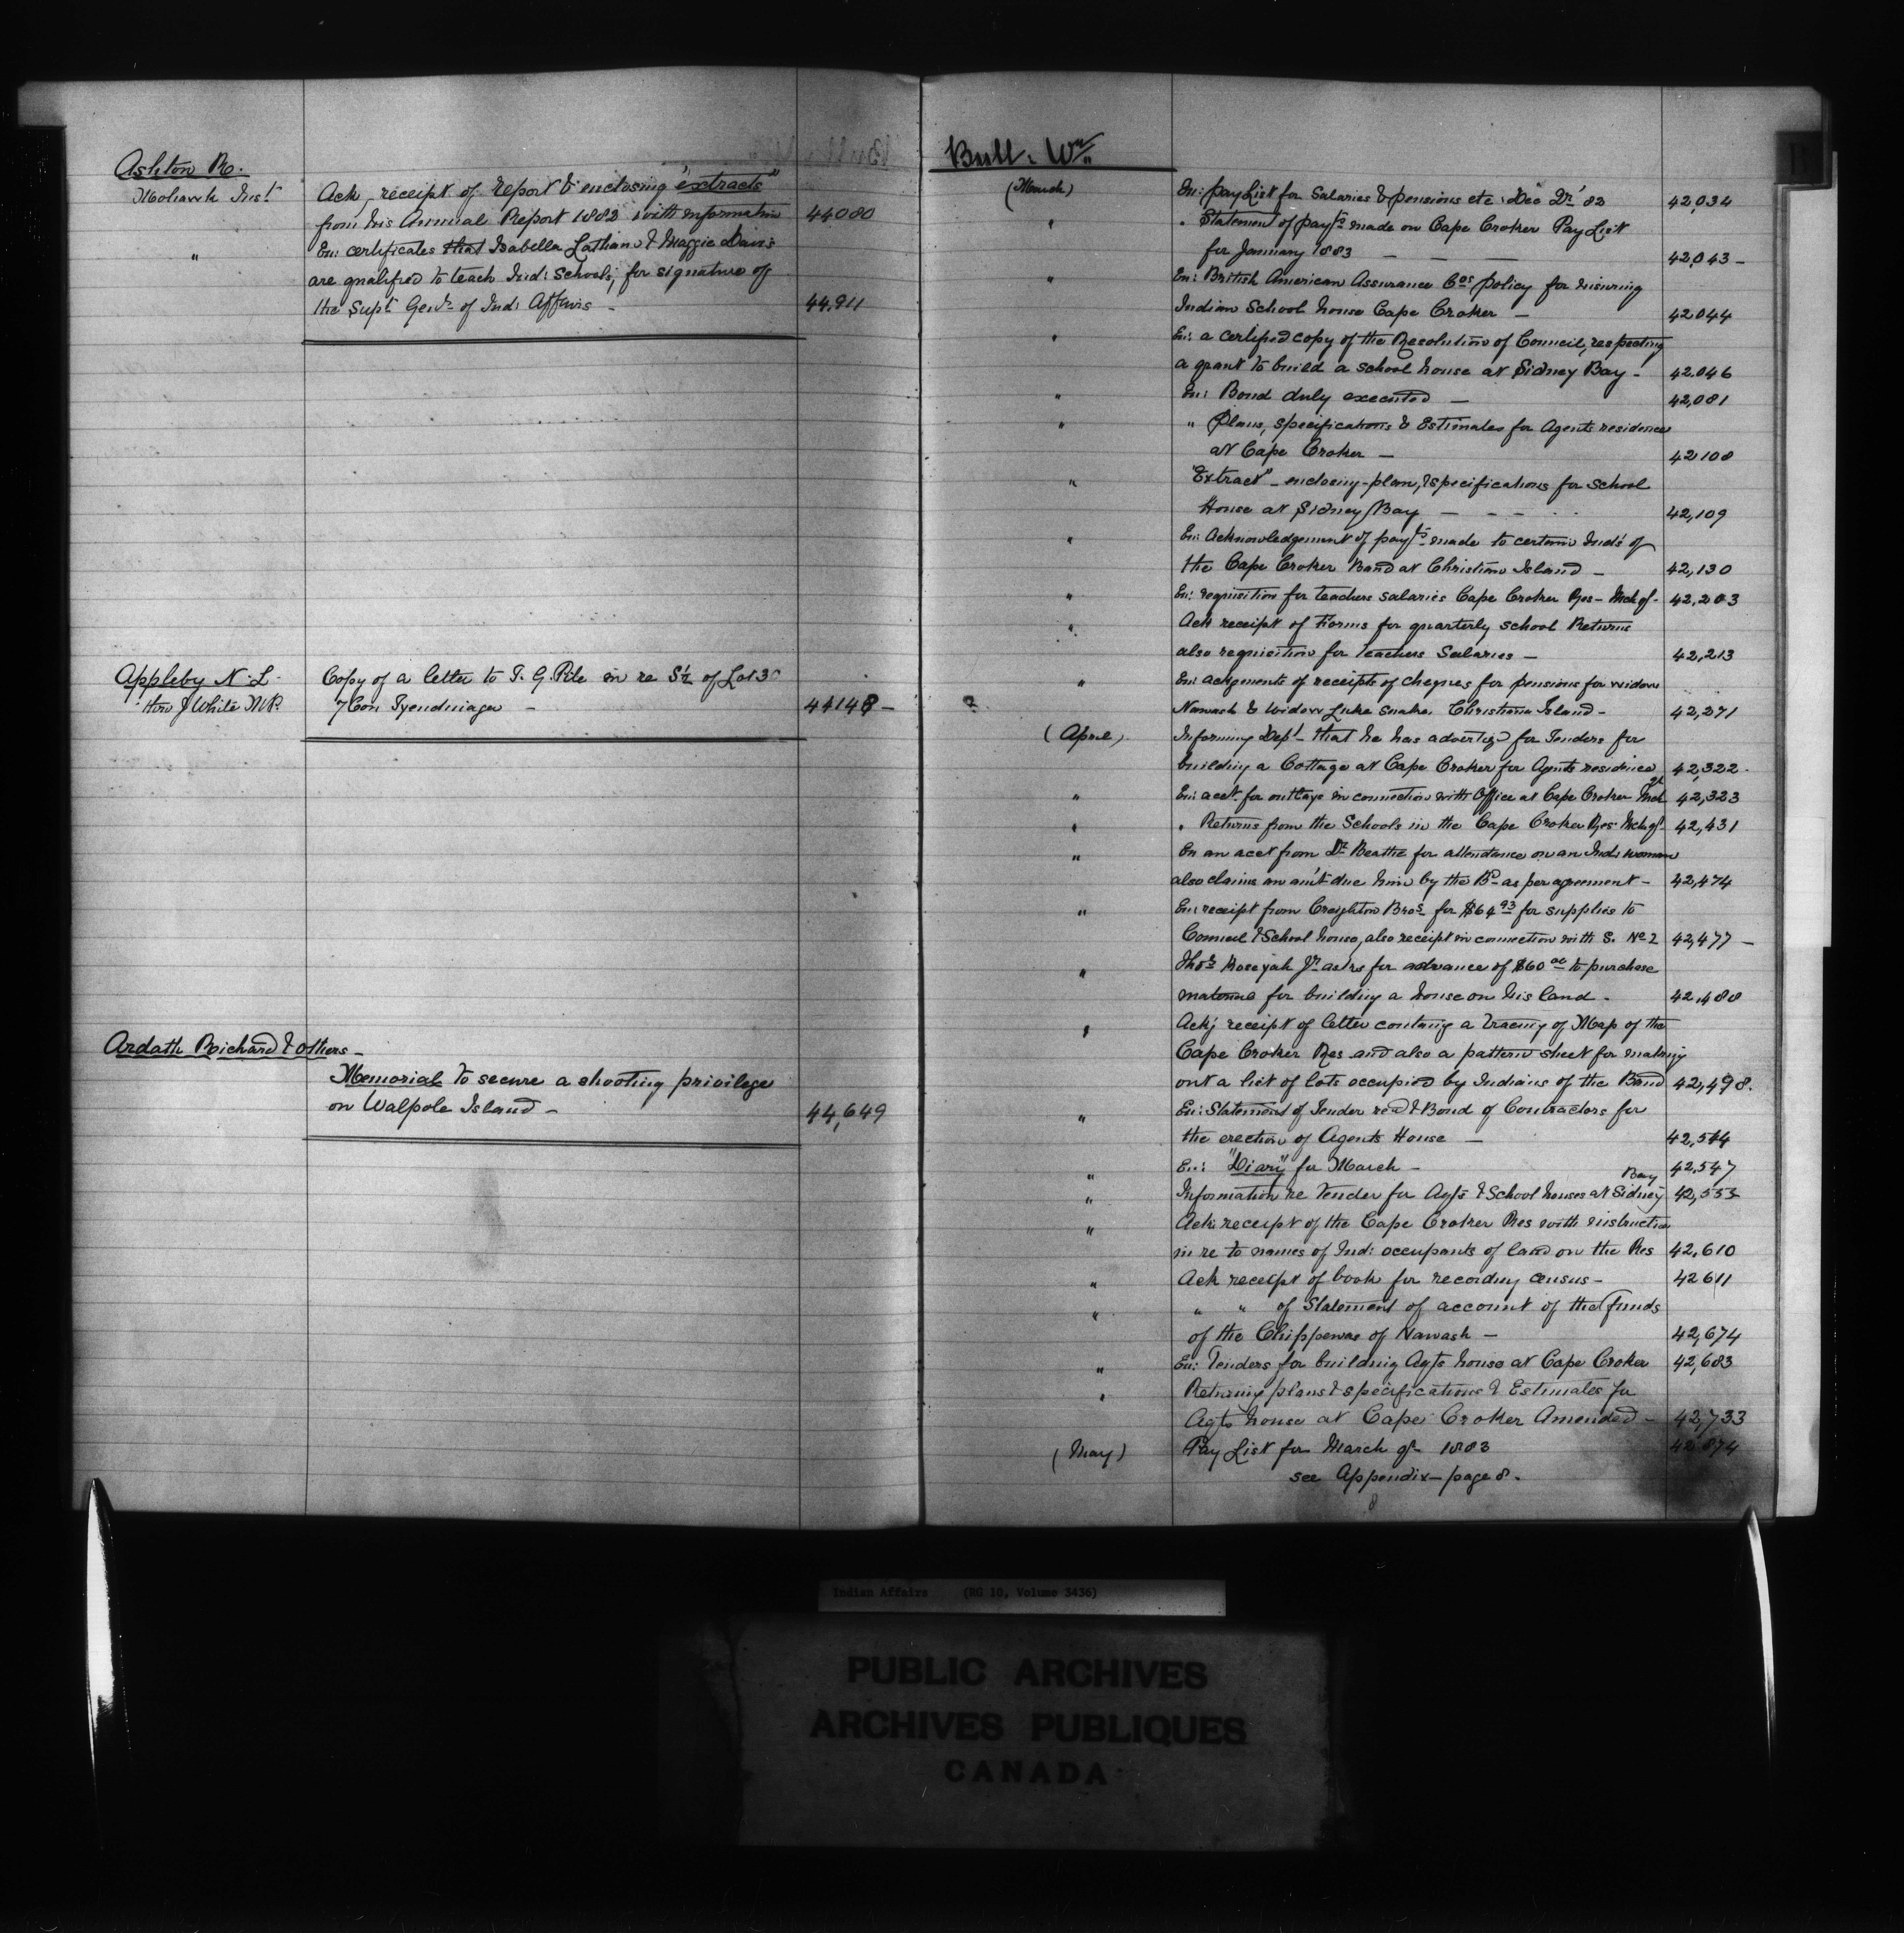 Ashton R.
Mohawk Inst
Ack, receipt of report & enclosing "extracts"
from his Annual Report 1882 with information 44080
" En: certificates that Isabella Lathian & Maggie Davis
are qualified to teach Ind: Schools, for signature of
the Supt Genl of Ind: Affairs - 44,911
Appleby N. L. Copy of a letter to T. G. Pile in re S½ of Lot 30
thro J White M.P. 7 Con Tyendinaga - 44148 -
Ardath Richard & others -
Memorial to secure a shooting privilege
on Walpole Island - 44,649
Bull. Wm
(March) En: pay List for Salaries & pensions etc Dec Qr '82 42,034
" " Statement of payts made on Cape Croker Pay List
for January 1883 - - - 42,043 -
" En: British American Assurance Cos policy for insuring
Indian School house Cape Croker - 42044
" En: a certified copy of the Resolution of Council, respecting
a grant to build a school house at Sidney Bay - 42.046
" En: Bond duly executed - 42,081
" " Plans, specifications & Estimates for Agents residence
at Cape Croker - 42108
" "Extract" - enclosing - plan, & specifications for school
House at Sidney Bay - - - 42,109
" En: Acknowledgement of payts made to certain Inds of
the Cape Croker Band at Christian Island - 42,130
" En: requisition for teachers salaries Cape Croker Res - Mch qr - 42,203
" Ack receipt of Forms for quarterly school Returns
also requisition for Teachers Salaries - 42,213
" En: ackgments of receipts of cheques for pensions for widow
Nawash & widow Luke Snake. Christian Island - 42,271
(April) Informing Dept - that he has advertizd for Tenders for
building a Cottage at Cape Croker for Agents residence 42,322 -
" En: acct for outlays in connection with Office at Cape Croker Mch qr 42,323
" " Returns from the Schools in the Cape Croker Res Mch qr 42,431
" En an acct from Dr Beattie for attendance on an Ind: woman
also claims an am't due him by the Bd as per agreement - 42,474
" En: receipt from Creighton Bros for $64 93 for supplies to
Council & School house, also receipt in connection with S. No 2 42,477 -
" Thos Jr asks for advance of $60 00 to purchase
material for building a house on his land - 42,480
" Ack: receipt of letter containg a tracing of Map of the
Cape Croker Res and also a pattern sheet for making
out a list of lots occupied by Indians of the Band 42,498.
" En: Statement of Tender recd & Bond of Contractors for
the erection of Agents House - 42,544
" En: "Diary" for March - 42,547
" Information re Tender for Agts & School houses at Sidney Bay 42,555
" Ack: receipt of the Cape Croker Res with instruction
in re to names of Ind: occupants of land on the Res 42,610
" Ack receipt of book for recording census - 42611
" " " of Statement of account of the funds
of the Chippewas of Nawash - 42,674
" En: Tenders for building Agts house at Cape Croker 42,683
" Returning plans & specifications & Estimates for
Agts house at Cape Croker Amended - 42,733
(May) Pay List for March qr 1883 42874
see Appendix - page 8.
8
Indian Affairs (RG 10, Volume 3436)
PUBLIC ARCHIVES
ARCHIVES PUBLIQUES
CANADA